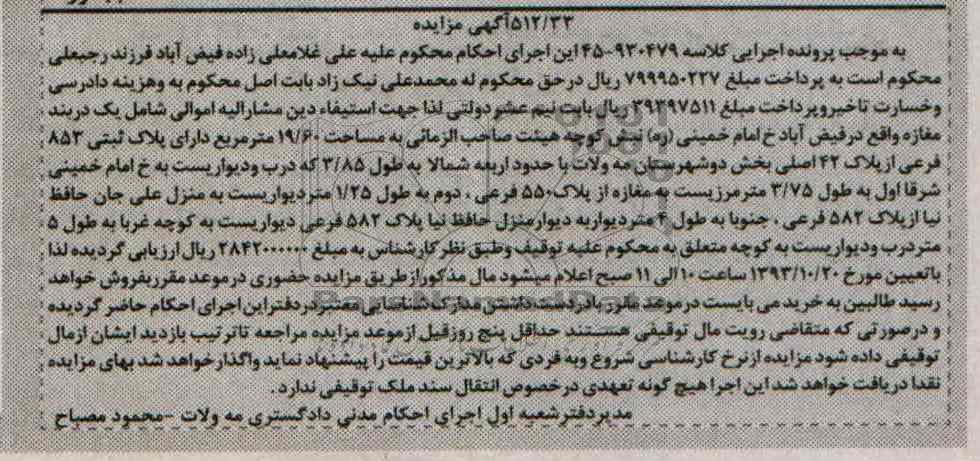 ۵۱۲/۳۳آگهی مزایده
به موجب پرونده اجرایی کلاسه ۹۳۰۴۷۹-۴۵ این اجرای احکام محکوم علیه علی غلامعلی زاده فیض آباد فرزند رجبعلی
محکوم است به پرداخت مبلغ ۷۹۹۹۵۰۲۲۷ ریال درحق محکوم له محمدعلی نیک زاد بابت اصل محکوم به وهزینه دادرسی
وخسارت تاخیروپرداخت مبلغ ۳۹۳۹۷۵۱۱ ریال بابت نیم عشر دولتی لذا جهت استیفاء دین مشارالیه اموالی شامل یک دربند
مغازه واقع درفیض آباد خ امام خمینی (ره) نبش کوچه هیئت صاحب الزمانی به مساحت ۱۹/۶۰ مترمربع دارای پلاک ثبتی ۸۵۳
فرعی ازپلاک ۴۲ اصلی بخش دوشهرستان مه ولات با حدود اربعه شمالا به طول ۳/۸۵ که درب ودیواریست به خ امام خمینی
شرقا اول به طول ۳/۷۵ مترمرزیست به مغازه از پلاک۵۵۰ فرعی ، دوم به طول ۱/۲۵ متردیواریست به منزل علی جان حافظ
نیا ازپلاک ۵۸۲ فرعی ، جنوبا به طول ۴ متردیواربه دیوارمنزل حافظ نیا پلاک ۵۸۲ فرعی دیواریست به کوچه غربا به طول ۵
متردرب ودیواریست به کوچه متعلق به محکوم علیه توقیف وطبق نظرکارشناس به مبلغ ۲۸۴۲۰۰۰۰۰۰ ریال ارزیابی گردیده لذا
باتعیین مورخ ۱۳۹۳/۱۰/۲۰ ساعت ۱۰ الی ۱۱ صبح اعلام میشود مال مذکورازطریق مزایده حضوری درموعد مقرربفروش خواهد
رسید طالبین به خرید می بایست درموعد مقرر بادردست داشتن مدارک شناسایی معتبردردفتراین اجرای احکام حاضر گردیده
و درصورتی که متقاضی رویت مال توقیفی هستند حداقل پنج روزقبل ازموعد مزایده مراجعه تاترتیب بازدید ایشان ازمال
توقیفی داده شود مزایده ازنرخ کارشناسی شروع وبه فردی که بالاترین قیمت را پیشنهاد نماید واگذارخواهد شد بهای مزایده
نقدا دریافت خواهد شد این اجرا هیچ گونه تعهدی درخصوص انتقال سند ملک توقیفی ندارد.
مدیردفترشعبه اول اجرای احکام مدنی دادگستری مه ولات -محمود مصباح